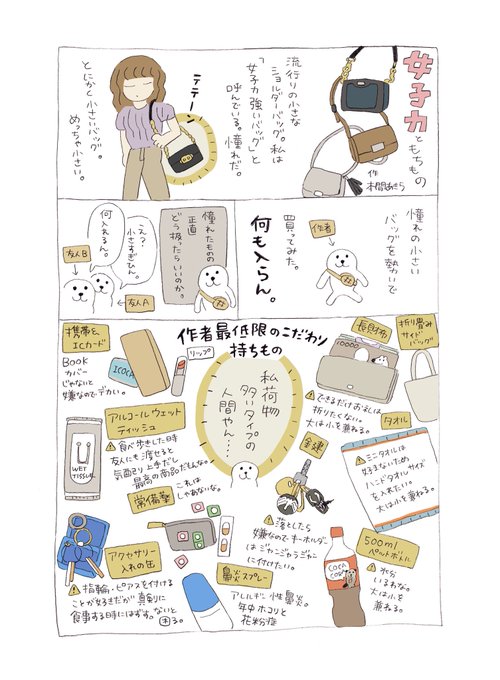 女子力ともちもの
作
本間あきら
流行りの小さな
ショルダーバッグ。私は
「女子力強いバッグ」と
呼んでいる。憧れだ。
テテーン
とにかく小さいバッグ。
めっちゃ小さい。
憧れの小さい
バッグを勢いで
買ってみた。
何も入らん。
作者
憧れたものの
正直
どう扱ったらいいのか。
え?
小さすぎひん。
何入れるん。
友人B
友人A
作者最低限のこだわり
持ちもの
私荷物
多いタイプの
人間やん…
折り畳み
サイド
バッグ
長財布
10000
⚠できるだけお札は
折りたくない。
大は小を兼ねる。
タオル
⚠ミニタオルは
好まないため
ハンドタオルサイズ
を入れたい。
大は小を兼ねる。
リップ
携帯と
ICカード
BOOK
カバー
じゃないと
嫌なのでデカい。
ICOCA
アルコールウェット
ティッシュ
⚠食べ歩きした時
友人にも渡せると
気配り上手だし
最高の商品だもんな。
WET
TISSUE
鍵達
⚠落としたら
嫌なのでキーホルダー
はジャンジャラジャン
に付けたい。
常備薬
これは
しゃあないな。
500ml
ペットボトル
⚠水分
いるわな。
大は小を
兼ねる。
COCA
COLA
アクセサリー
入れの缶
⚠指輪・ピアスを付ける
ことが好きだが真剣に
食事する時にはずす。ないと
困る。
鼻炎スプレー
アレルギー性鼻炎。
年中ホコリと
花粉症